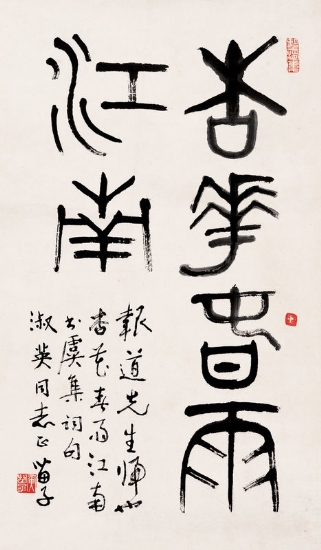 杏花春雨
江南
報道先生歸也
杏花春雨江南
書虞集詞句
淑英同志正 苗子